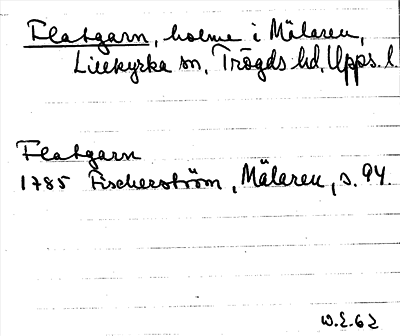 Flatgarn, holme i Mälaren,
Lillkyrka sn, Trögds hd, Upps. l
Flatgarn
1785 Fischerström, Mälaren, s. 94.
W.E. 62